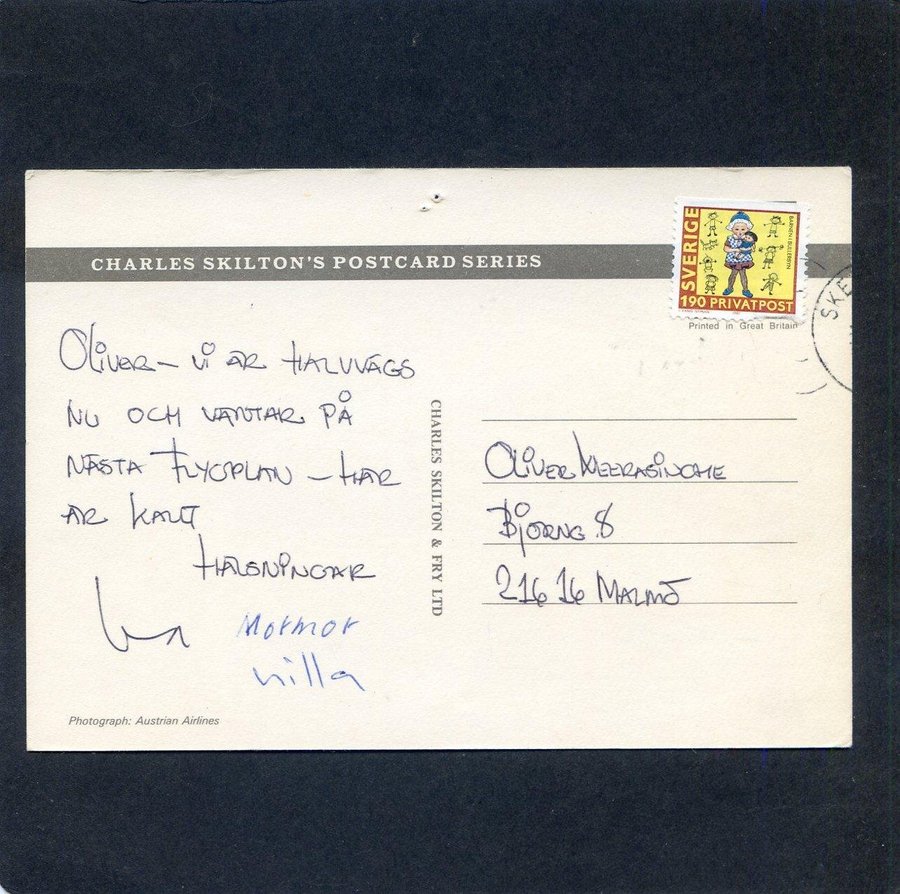 CHARLES SKILTON'S POSTCARD SERIES
SVERIGE
BARNEN I BULLERBYN
190 PRIVATPOST
Printed in Great Britain
SKE
OLIVER – VI ÄR HALVVÄGS
NU OCH VÄNTAR PÅ
NÄSTA FLYGPLAN – HÄR
ÄR KALLT
HÄLSNINGAR
Mormor
nilla
CHARLES SKILTON & FRY LTD
OLIVER WEERASINGHE
BJÖRNG. 8
216 16 MALMÖ
Photograph: Austrian Airlines